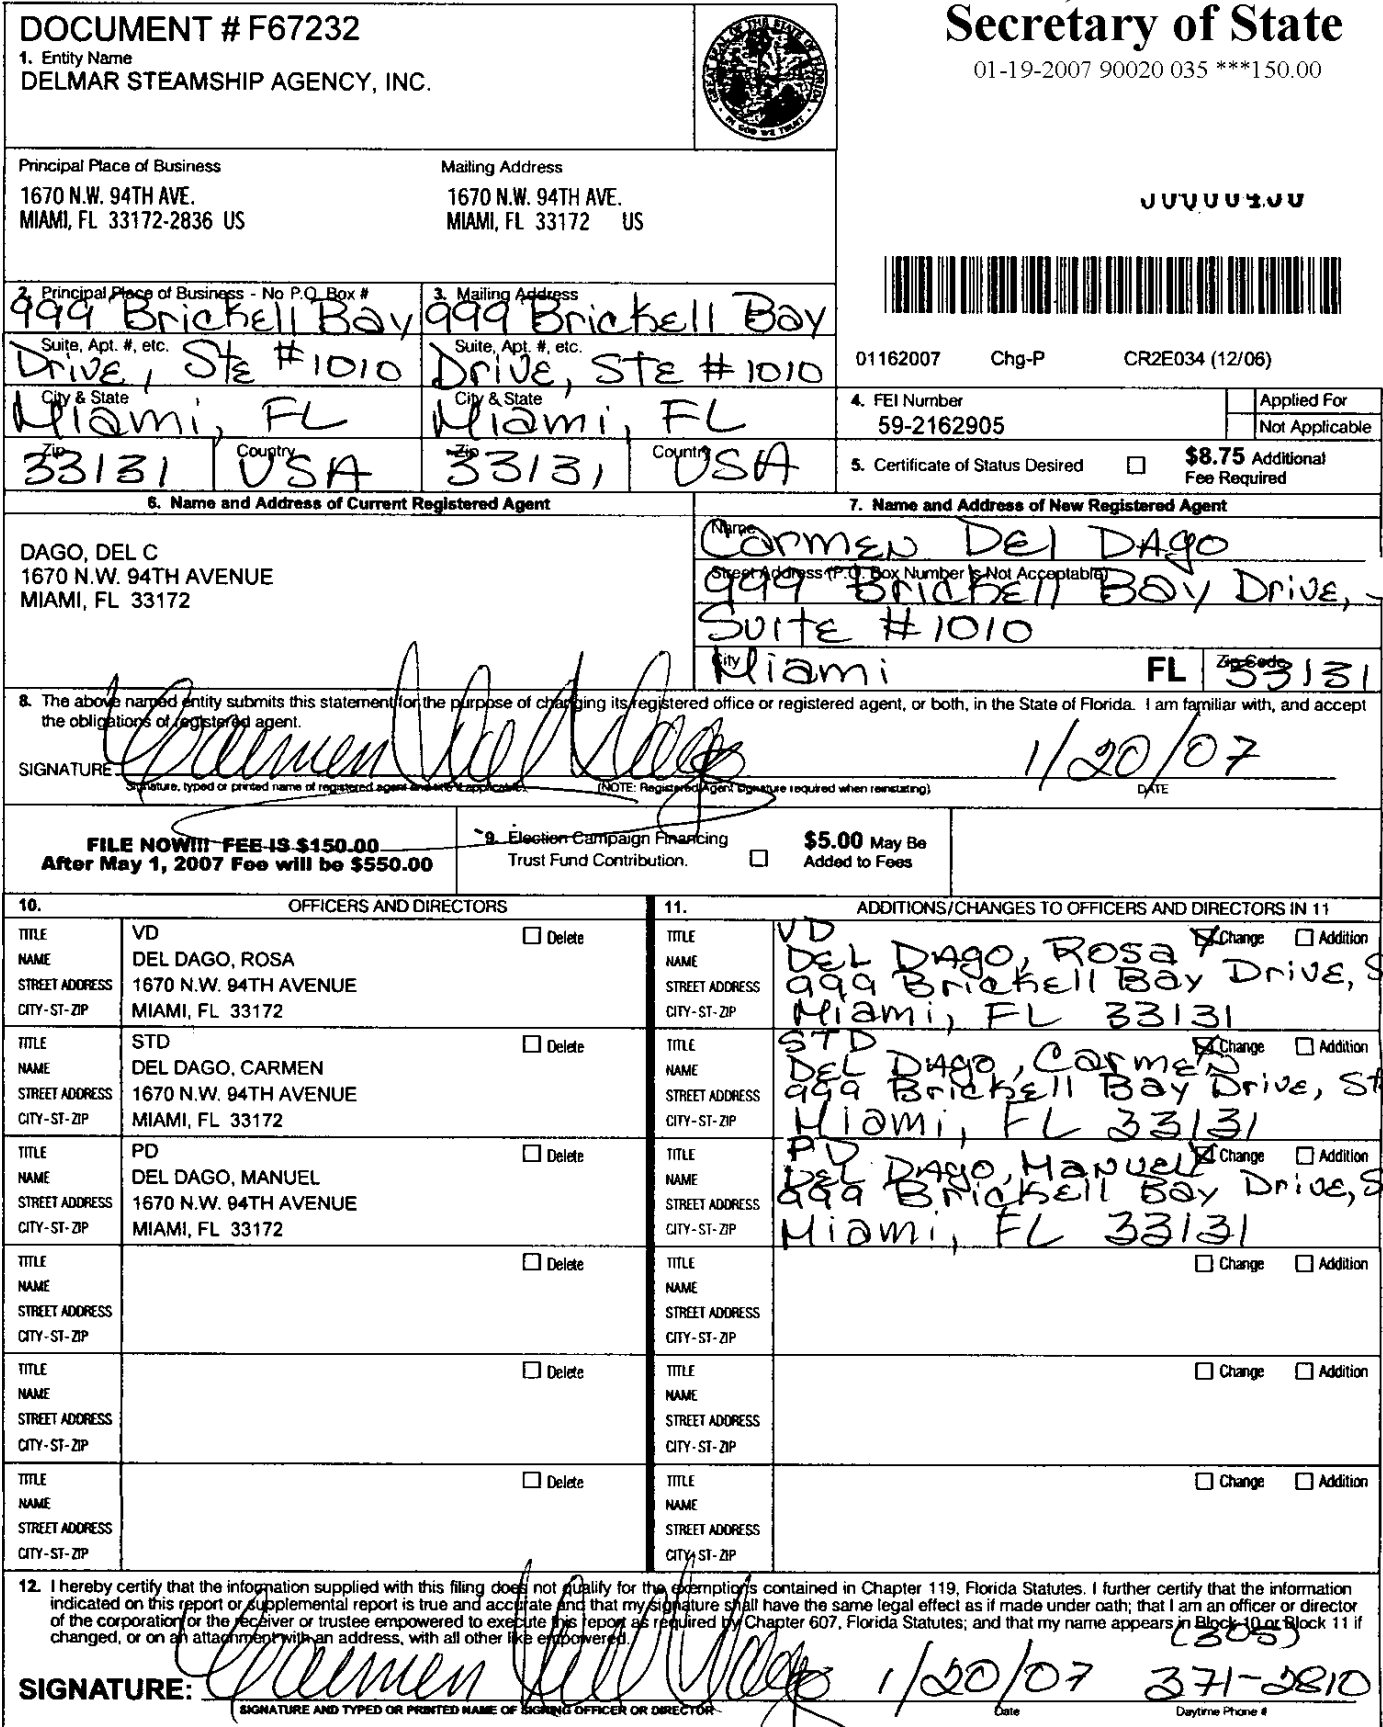 DOCUMENT # F67232
Secretary of State
1. Entity Name
DELMAR STEAMSHIP AGENCY, INC.
01-19-2007 90020 035 ***150.00
Principal Place of Business
Mailing Address
1670 N.W. 94TH AVE.
MIAMI, FL 33172-2836 US
1670 N.W. 94TH AVE.
MIAMI, FL 33172 US
2. Principal Place of Business - No P.O. Box #
999 Brickell Bay
Suite, Apt. #, etc.
Drive, Ste #1010
City & State
Miami, FL
Zip
33131
Country
USA
3. Mailing Address
999 Brickell Bay
Suite, Apt. #, etc.
Drive, Ste #1010
City & State
Miami, FL
Zip
33131
Country
USA
01162007 Chg-P CR2E034 (12/06)
4. FEI Number
59-2162905
Applied For
Not Applicable
5. Certificate of Status Desired
$8.75 Additional
Fee Required
6. Name and Address of Current Registered Agent
DAGO, DEL C
1670 N.W. 94TH AVENUE
MIAMI, FL 33172
7. Name and Address of New Registered Agent
Name
Carmen Del Dago
Street Address (P.O. Box Number is Not Acceptable)
999 Brickell Bay Drive,
Suite #1010
City
Miami
FL
Zip Code
33131
8. The above named entity submits this statement for the purpose of changing its registered office or registered agent, or both, in the State of Florida. I am familiar with, and accept
the obligations of registered agent.
SIGNATURE Carmen Del Dago 1/20/07
Signature, typed or printed name of registered agent and title if applicable. (NOTE: Registered Agent signature required when reinstating) DATE
FILE NOW!!! FEE IS $150.00
After May 1, 2007 Fee will be $550.00
9. Election Campaign Financing
Trust Fund Contribution.
$5.00 May Be
Added to Fees
10. OFFICERS AND DIRECTORS
11. ADDITIONS/CHANGES TO OFFICERS AND DIRECTORS IN 11
TITLE VD Delete
NAME DEL DAGO, ROSA
STREET ADDRESS 1670 N.W. 94TH AVENUE
CITY-ST-ZIP MIAMI, FL 33172
TITLE VD Change Addition
NAME DEL DAGO, ROSA
STREET ADDRESS 999 Brickell Bay Drive, S
CITY-ST-ZIP Miami, FL 33131
TITLE STD Delete
NAME DEL DAGO, CARMEN
STREET ADDRESS 1670 N.W. 94TH AVENUE
CITY-ST-ZIP MIAMI, FL 33172
TITLE STD Change Addition
NAME DEL DAGO, Carmen
STREET ADDRESS 999 Brickell Bay Drive, St
CITY-ST-ZIP Miami, FL 33131
TITLE PD Delete
NAME DEL DAGO, MANUEL
STREET ADDRESS 1670 N.W. 94TH AVENUE
CITY-ST-ZIP MIAMI, FL 33172
TITLE PD Change Addition
NAME DEL DAGO, Manuel
STREET ADDRESS 999 Brickell Bay Drive, S
CITY-ST-ZIP Miami, FL 33131
TITLE Delete
NAME
STREET ADDRESS
CITY-ST-ZIP
TITLE Change Addition
NAME
STREET ADDRESS
CITY-ST-ZIP
TITLE Delete
NAME
STREET ADDRESS
CITY-ST-ZIP
TITLE Change Addition
NAME
STREET ADDRESS
CITY-ST-ZIP
TITLE Delete
NAME
STREET ADDRESS
CITY-ST-ZIP
TITLE Change Addition
NAME
STREET ADDRESS
CITY-ST-ZIP
12. I hereby certify that the information supplied with this filing does not qualify for the exemptions contained in Chapter 119, Florida Statutes. I further certify that the information
indicated on this report or supplemental report is true and accurate and that my signature shall have the same legal effect as if made under oath; that I am an officer or director
of the corporation or the receiver or trustee empowered to execute this report as required by Chapter 607, Florida Statutes; and that my name appears in Block 10 or Block 11 if
changed, or on an attachment with an address, with all other like empowered.
(305)
SIGNATURE: Carmen Del Dago 1/20/07 371-2810
SIGNATURE AND TYPED OR PRINTED NAME OF SIGNING OFFICER OR DIRECTOR Date Daytime Phone #